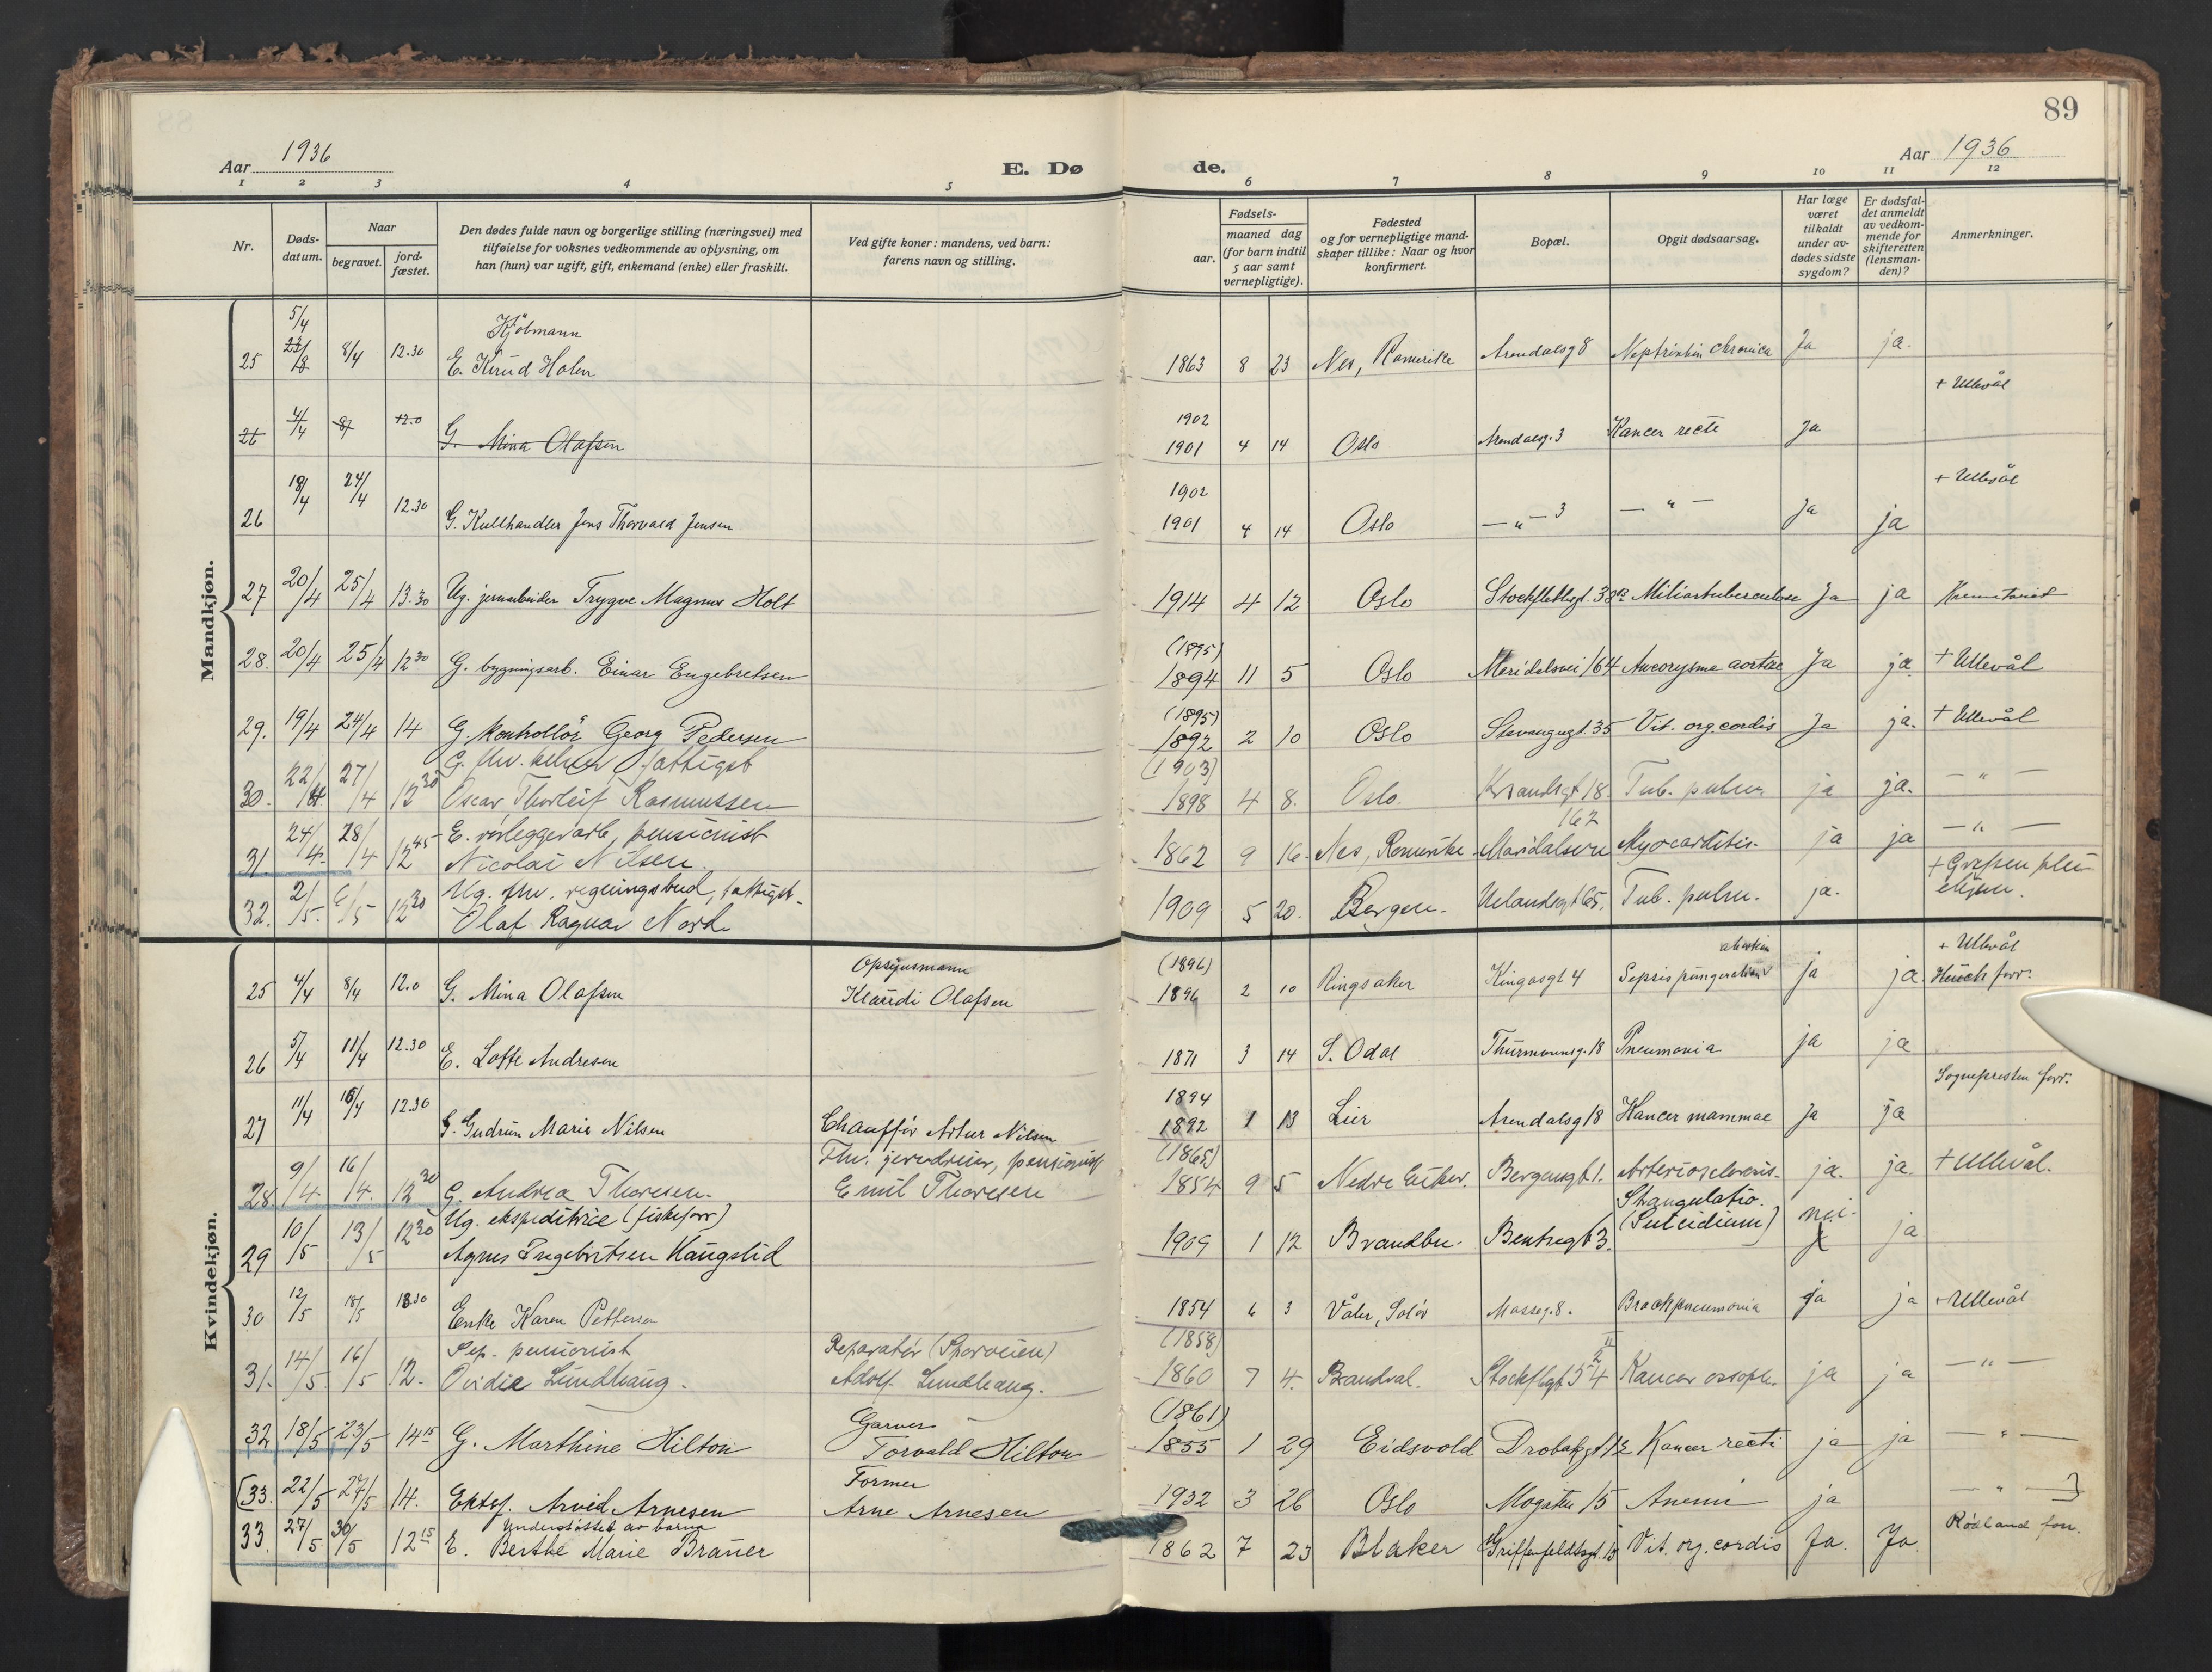 89
Aar 1936
E. Dø
de.
Aar 1936
1 2 3 4 5 6 7 8 9 10 11 12
Nr.
Døds-
datum.
Naar
begravet.
jord-
fæstet.
Den dødes fulde navn og borgerlige stilling (næringsvei) med
tilføielse for voksnes vedkommende av oplysning, om
han (hun) var ugift, gift, enkemand (enke) eller fraskilt.
Ved gifte koner: mandens, ved barn:
farens navn og stilling.
Fødsels-
aar.
maaned dag
(for barn indtil
5 aar samt
vernepligtige).
Fødested
og for vernepligtige mand-
skaper tillike: Naar og hvor
konfirmert.
Bopæl.
Opgit dødsaarsag.
Har læge
været
tilkaldt
under av-
dødes sidste
sygdom?
Er dødsfal-
det anmeldt
av vedkom-
mende for
skifteretten
(lensman-
den)?
Anmerkninger.
Mandkjøn.
5/4
Kjøbmann
25 8/4 12.30 E. Knud Holen 1863 8 23 Nes, Romerike Arendalsg 8 chronica Ja ja.
+ Ullevål
1902
26 4/4 8/4 12.0 G. Mina Olafsen 1901 4 14 Oslo Arendalsg. 3 Kancer recti Ja
+ Ullevål
1902
26 18/4 24/4 12.30 G. Kullhandler Jens Thorvald Jensen 1901 4 14 Oslo — " — 3 — " — Ja ja
27 20/4 25/4 13.30 Ug. jernarbeider Trygve Magnus Holt 1914 4 12 Oslo Stockflethsgt. 38 Miliartuberculose Ja ja Krematoriet
(1895)
28. 20/4 25/4 12 30 G. bygningsarb. Einar Engebretsen 1894 11 5 Oslo Maridalsvei 164 Aneorysma aortae Ja ja. + Ullevål
(1895)
29. 19/4 24/4 14 G. Kontrollør Georg Pedersen 1892 2 10 Oslo Stavangergt. 35 Vit. org. cordis Ja ja. + Ullevål
G. fhv. kelner fattigst (1903)
30. 22/4 27/4 12 30 Oscar Thorleif Rasmussen 1898 4 8. Oslo. Krsandsgt 18 Tub. pulm. ja ja. — " —
E. rørleggerarb, pensionist 162
31. 24/4. 28/4 12 45 Nicolai Nilsen. 1862 9 16. Nes, Romerike. Maridalsvn Myocarditis. ja ja — " —
Ug. fhv. regningsbud, fattigst. + Grefsen
32. 2/5. 6/5 12 30 Olaf Ragnar Nord 1909 5 20. Bergen. Uelandsgt 65. Tub. pulm. ja.
Kvindekjøn.
Opsynsmann (1896) + Ullevål
25 4/4 8/4 12.0 G. Mina Olafsen Klaudi Olafsen 1896 2 10 Ringsaker Kingosgt 4 Sepsis ja ja. Hauch forr.
26 5/4 11/4 12.30 E. Lotte Andresen 1871 3 14 S. Odal Thurmannsg. 18 Pneumonia ja ja
Sognepresten forr.
1894
27 11/4 16/4 12.30 G. Gudrun Marie Nilsen Chauffør Artur Nilsen 1892 1 13 Lier Arendalsg 18 Kancer mammae Ja ja
Fhv. jerndreier, pensionist (1865)
28. 9/4. 16/4. 12 30 G. Andrea Thoresen. Emil Thoresen 1854 9 5 Nedre Eiker. Bergensgt 1. Arteriosclerosis. ja. ja. + Ullevål.
Ug. ekspeditrice (fiskeforr) Strangulatio.
29 10/5 13/5 12 30 Agnes Ingebritsen Haugslid 1909 1 12 Brandbu. Bentsegt 3. (Suicidium) nei. ja
30 12/5 18/5 13.30 Enke Karen Pettersen 1854 6 3 Våler, Solør Mosseg. 8. Brochpneumonia ja ja + Ullevål
Sep. pensionist Reparatør (Sporveien) (1858)
31. 14/5. 16/5 12. Ovidia Lundhaug. Adolf Lundhaug. 1860 7 4. Brandval. Stockflgt 54 Kancer ja ja — " —
Garver (1861)
32 18/5 23/5 14 15 G. Marthine Hilton Torvald Hilton 1855 1 29 Eidsvold Drøbakgt 12 Kancer recti ja ja — " —
Former
[33. 22/5 27/5 14. Ektef. Arvid Arnesen Arne Arnesen 1932 3 26 Oslo Mogaten 15 Anemi ja — " —]
Understøttet av barna Rødland forr.
33. 27/5 30/5 12 15 E. Berthe Marie Brauer 1862 7 23 Blaker Griffenfeldtsgt. 15 Vit. org. cordis Ja. Ja.